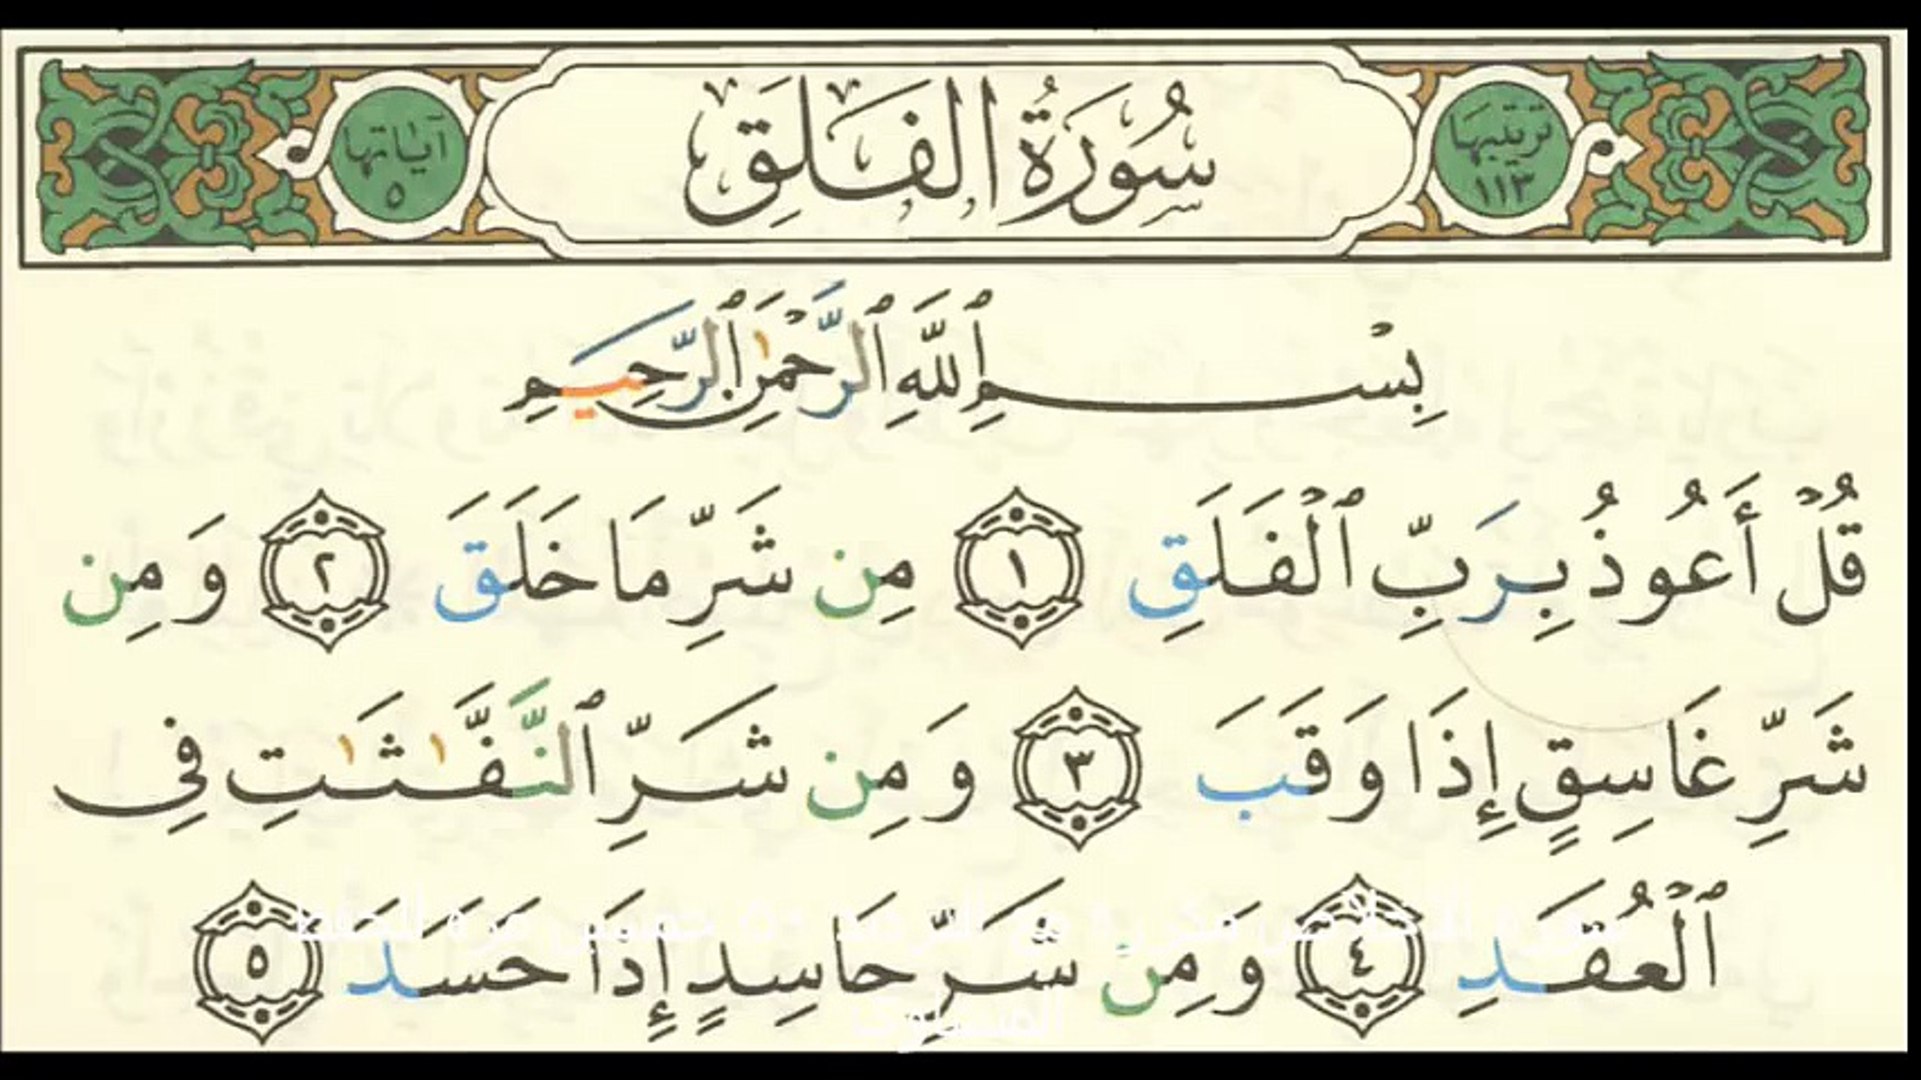 ترتيبها ١١٣
سُورَةُ الفَلَقِ
آيَاتها ٥
بِسْمِ ٱللَّهِ ٱلرَّحْمَٰنِ ٱلرَّحِيمِ
قُلْ أَعُوذُ بِرَبِّ ٱلْفَلَقِ ١ مِن شَرِّ مَا خَلَقَ ٢ وَمِن
شَرِّ غَاسِقٍ إِذَا وَقَبَ ٣ وَمِن شَرِّ ٱلنَّفَّٰثَٰتِ فِى
ٱلْعُقَدِ ٤ وَمِن شَرِّ حَاسِدٍ إِذَا حَسَدَ ٥